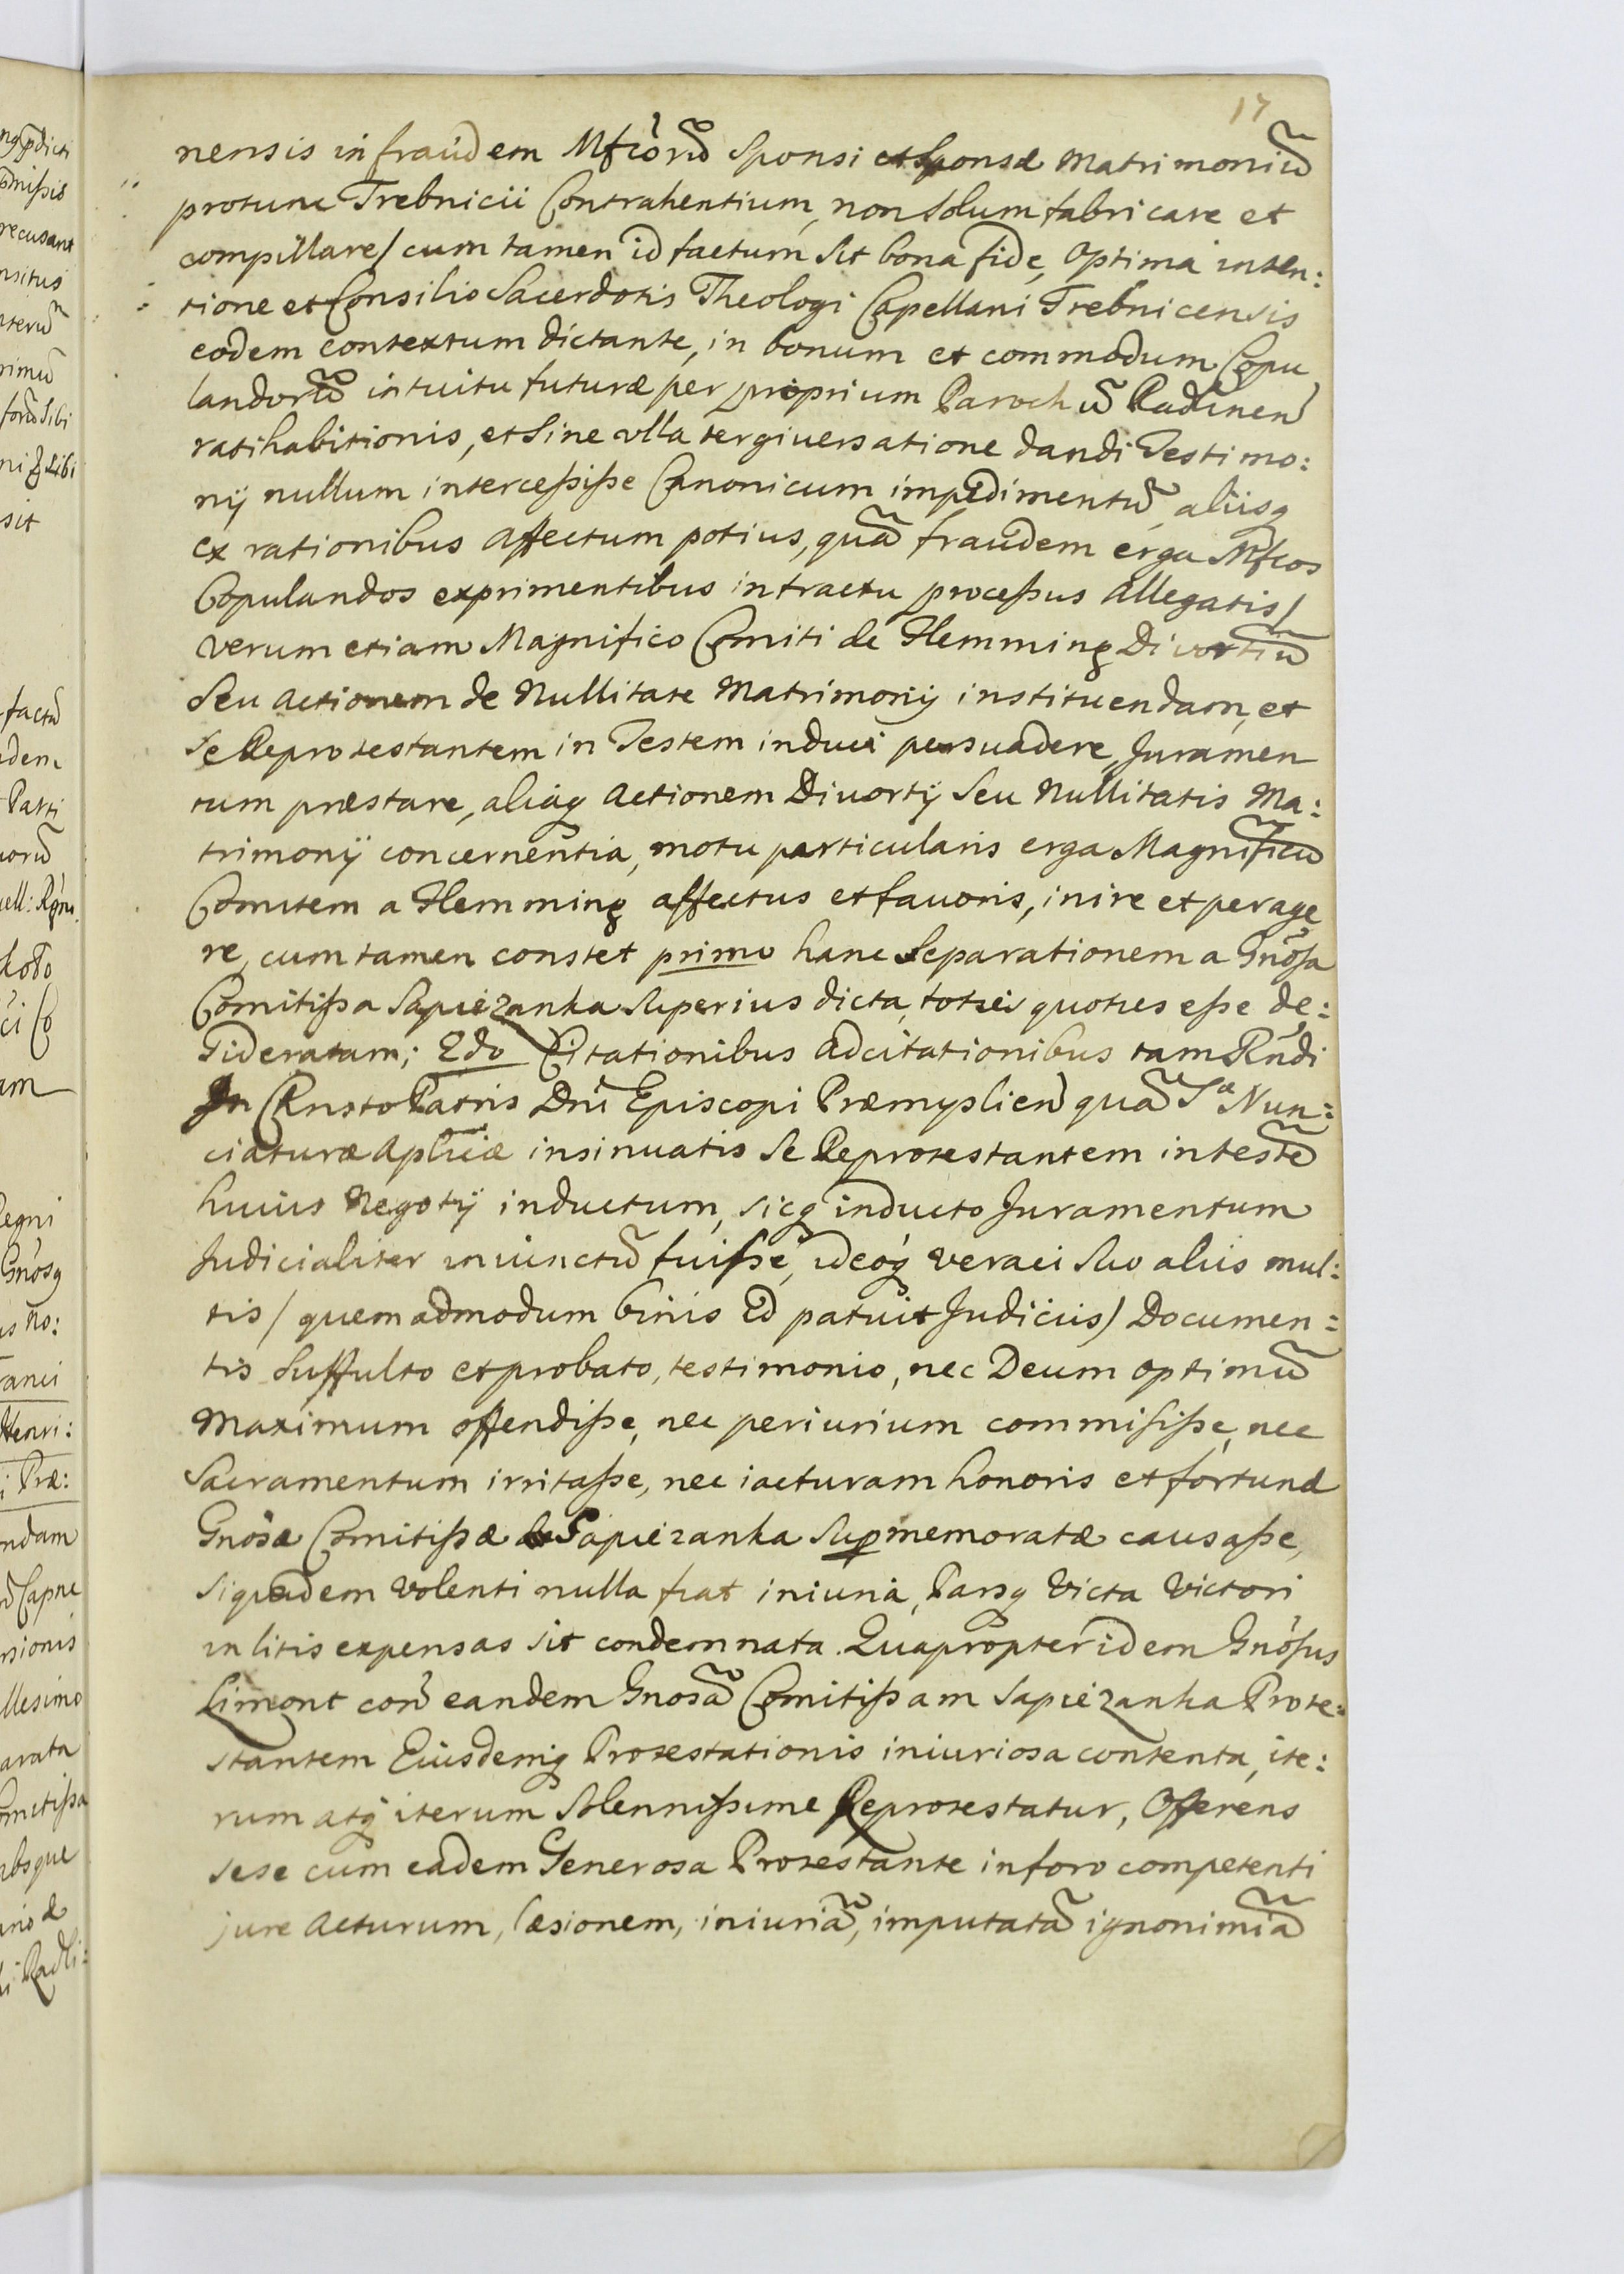 17
nensis in fraudem Mfcorũ Sponsi et Sponsæ Matrimoniũ
protunc Trebnicii Contrahentium, non solum fabricare et
compillare / cum tamen id factum sit bona fide, Optima inten:
tione et Consilio Sacerdotis Theologi Capellani Trebnicensis
eodem contextum dictante, in bonum et commodum Copu
landorũ intuitu futuræ per proprium Parochũ Radinen
ratihabitionis, et sine ulla tergiversatione dandi Testimo:
nÿ nullum intercessisse Canonicum impedimentũ, aliisq
ex rationibus affectum potius, quã fraudem erga Mfcos
Copulandos exprimentibus in tractu processus allegatis /
verum etiam Magnifico Comiti de Flemming Divortiũ
Seu Actionem de Nullitate Matrimonÿ instituendam, et
se Reprotestantem in Testem induci persuadere, Juramen
tum præstare, aliaq Actionem Divortÿ Seu Nullitatis Ma:
trimonÿ concernentia, motu particularis erga Magnificũ
Comitem a Flemming affectus et favoris, inire et perage
re, cum tamen constet primo hanc Separationem a Gnosa
Comitissa Sapiezanka superius dicta, toties quoties esse de:
sideratam; 2do Citationibus adcitationibus tam Rndi
In Christo Patris Dni Episcopi Præmyslien quã Sæ Nun:
ciaturæ Aplicæ insinuatis se Reprotestantem in testẽ
huius Negotÿ inductum, sicq inducto Juramentum
Judicialiter iniunctũ fuisse, ideoq veraci suo aliis mul:
tis / quemadmodum binis id patuit Judiciis / Documen:
tis suffulto et probato, testimonio, nec Deum optimũ
Maximum offendisse, nec periurium commisisse, nec
Sacramentum irritasse, nec iacturam honoris et fortunæ
Gnosæ Comitissæ Sapiezanka supmemoratæ causasse,
siquidem volenti nulla fiat iniuria, Parsq Victa Victori
in litis expensas sit condemnata. Quapropter idem Gnosus
Limont con eandem Gnosã Comitissam Sapiezanka Prote:
stantem Eiusdemq Protestationis iniuriosa contenta, ite:
rum atq iterum solennissime Reprotestatur, Offerens
sese cum eadem Generosa Protestante in foro competenti
jure Acturum, læsionem, iniuriã, imputatã ignonimiã